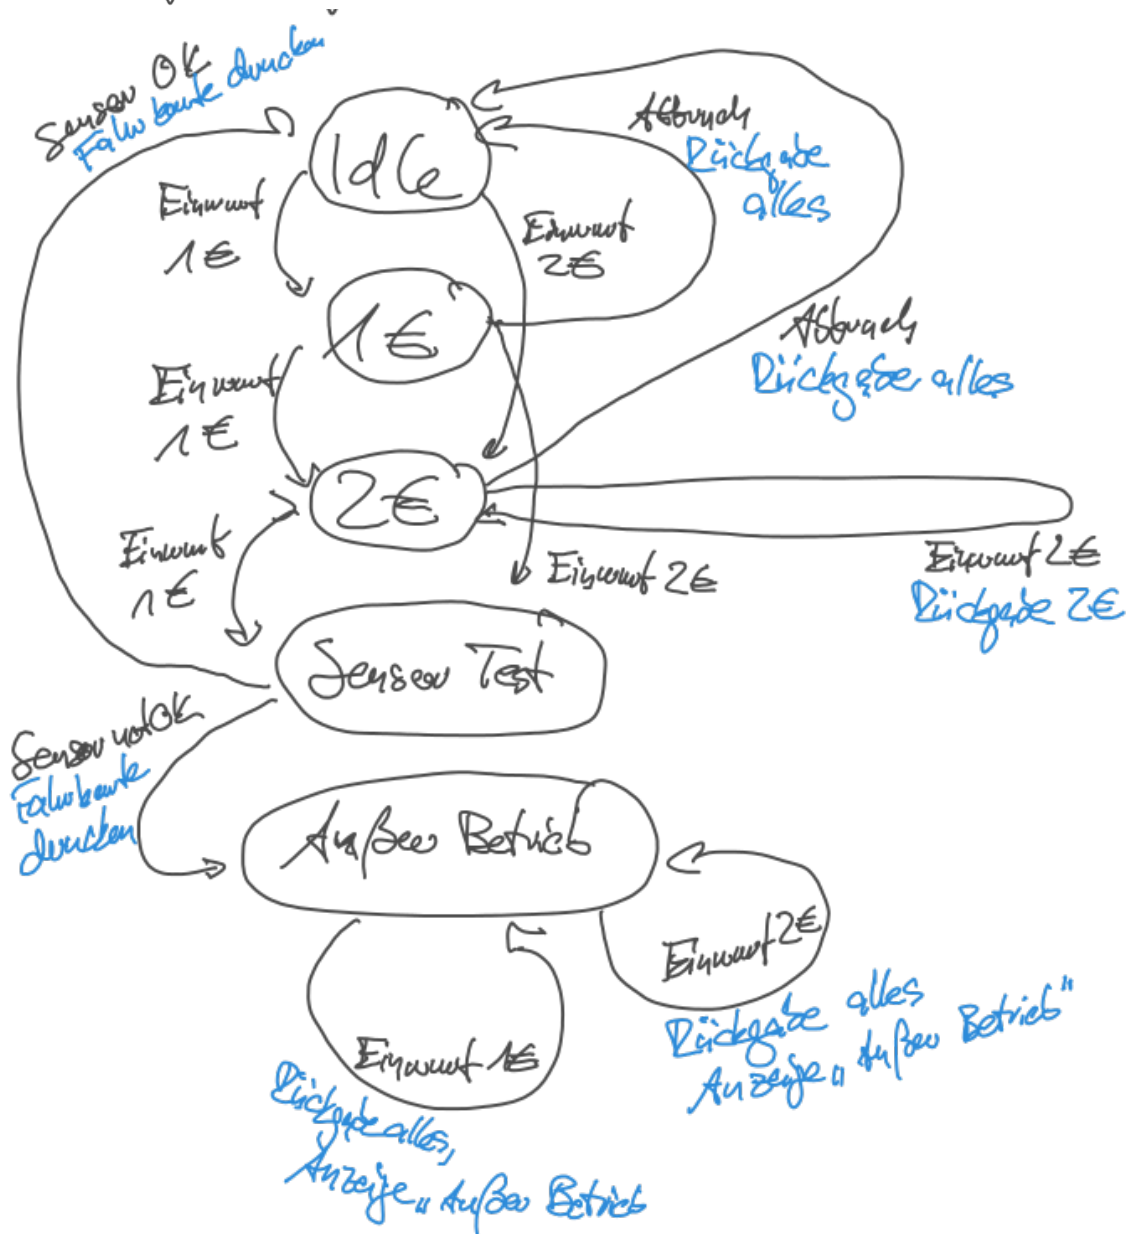 Sensor OK
Fahrkarte drucken
Idle
Abbruch
Rückgabe
alles
Einwurf
1€
Einwurf
2€
1€
Abbruch
Rückgabe alles
Einwurf
1€
2€
Einwurf
1€
Einwurf 2€
Einwurf 2€
Rückgabe 2€
Sensor Test
Sensor not OK
Fahrkarte
drucken
Außer Betrieb
Einwurf 2€
Rückgabe alles
Anzeige „Außer Betrieb"
Einwurf 1€
Rückgabe alles,
Anzeige „Außer Betrieb